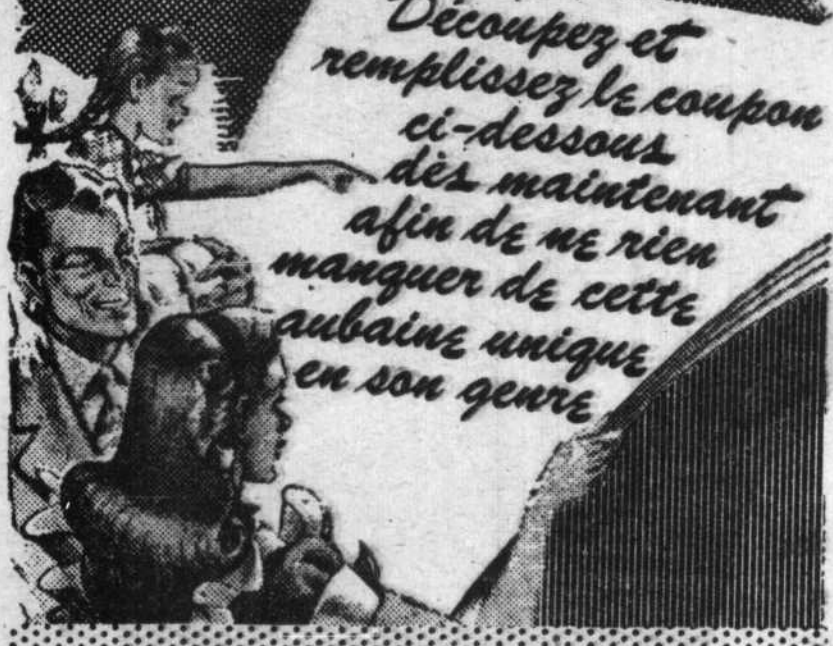 Découpez et
remplissez le coupon
ci-dessous
dès maintenant
afin de ne rien
manquer de cette
aubaine unique
en son genre